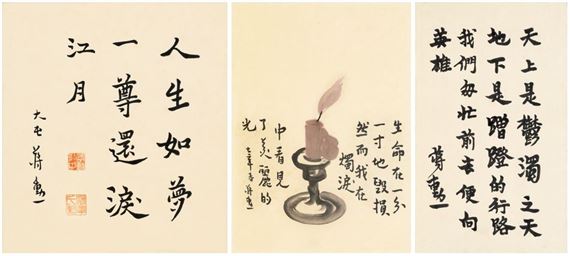 人生如夢
一尊還淚
江月
大屯 蔣勳
生命在一分
一寸地毀損
然而我在
燭淚
中看見
了美麗的
光
蔣勳
天上是鬱濁之天
地下是蹭蹬的行路
我們匆忙前去便向
英雄
蔣勳